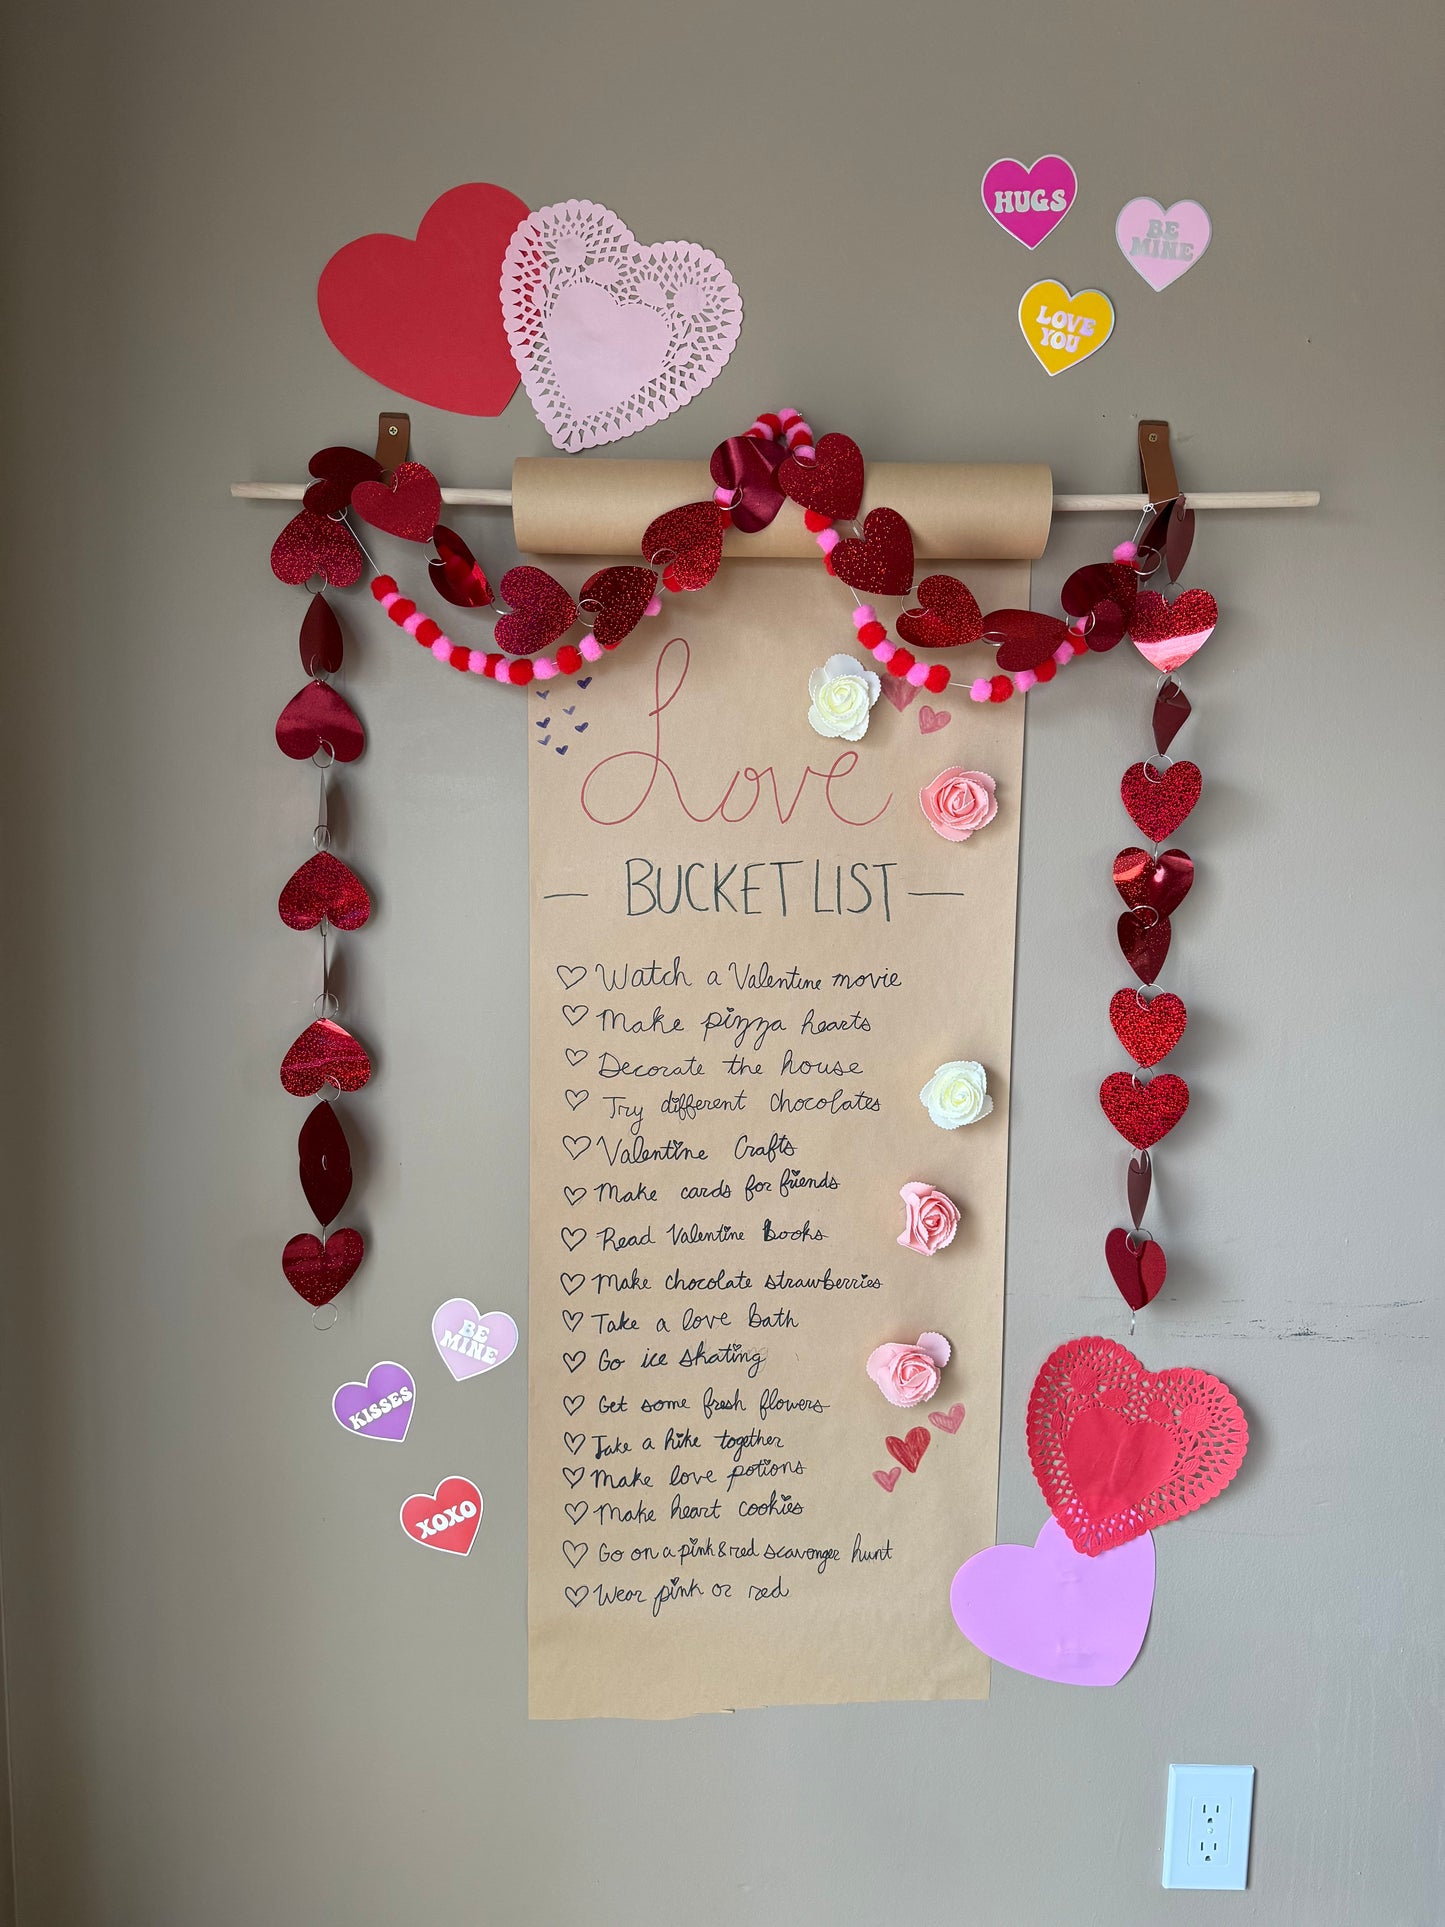 HUGS
BE
MINE
LOVE
YOU
Love
— BUCKET LIST —
Watch a Valentine movie
Make pizza hearts
Decorate the house
Try different chocolates
Valentine Crafts
Make cards for friends
Read Valentine Books
Make chocolate strawberries
Take a love bath
Go ice skating
Get some fresh flowers
Take a hike together
Make love potions
Make heart cookies
Go on a pink & red scavenger hunt
Wear pink or red
BE
MINE
KISSES
XOXO